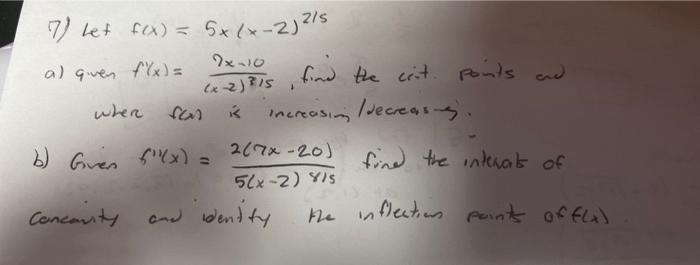 7) Let f(x) = 5x(x-2)^{2/5}
a) given f'(x) = \frac{7x-10}{(x-2)^{3/5}}, find the crit. points and
where f(x) is increasing/decreasing.
b) Given f''(x) = \frac{2(7x-20)}{5(x-2)^{8/5}} find the intervals of
Concavity and identify the inflection points of f(x)